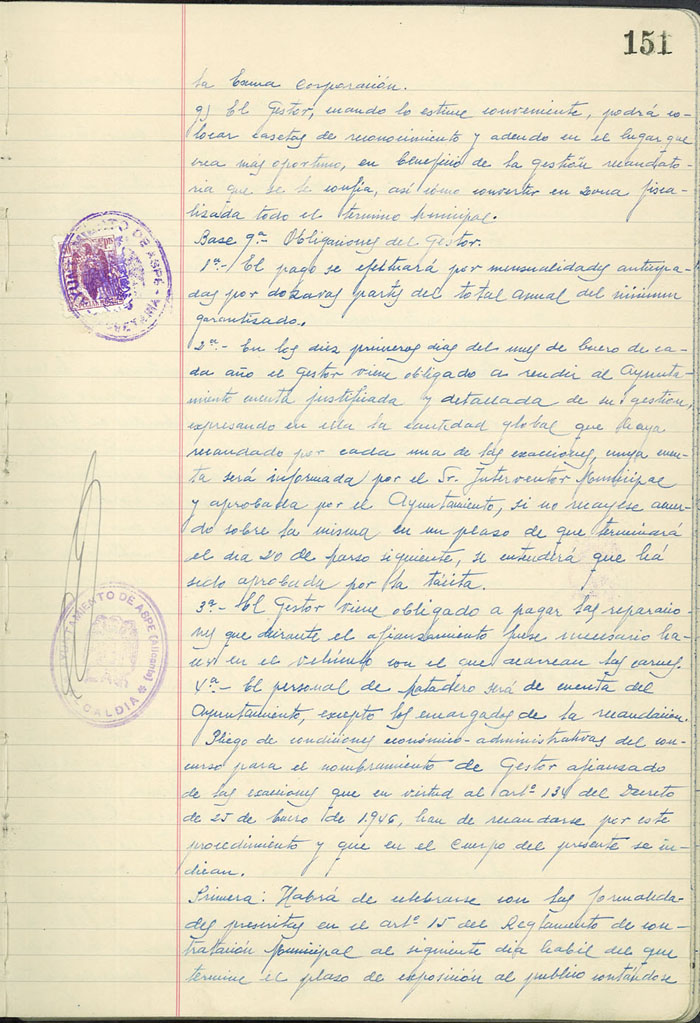 151
la Exma Corporación.
9) El Gestor, cuando lo estime conveniente, podrá co-
locar casetas de reconocimiento y adeudo en el lugar que
crea mas oportuno, en beneficio de la gestión recaudato-
ria que se le confia, así como convertir en zona fisca-
lizada todo el termino municipal.
Base 9ª.- Obligaciones del Gestor.
1ª.- El pago se efectuará por mensualidades anticipa-
das por dozavas partes del total anual del minimun
garantizado.
2ª.- En los diez primeros dias del mes de Enero de ca-
da año el Gestor viene obligado a rendir al Ayunta-
miento cuenta justificada y detallada de su gestión,
expresando en ella la cantidad global que haya
recaudado por cada una de las exacciones, cuya cuen-
ta será informada por el Sr. Interventor Municipal
y aprobada por el Ayuntamiento, si no recayese acuer-
do sobre la misma en un plaso de que terminará
el dia 20 de siguiente, se entenderá que há
sido aprobada por la tácita.
3ª.- El Gestor viene obligado a pagar las reparacio-
nes que durante el afianzamiento fuese necesario ha-
cer en el vehículo con el que acarrean las carnes.
4ª.- El personal de Matadero será de cuenta del
Ayuntamiento, excepto los encargados de la recaudación.
Pliego de condiciones económico-administrativas del con-
curso para el nombramiento de Gestor afianzado
de las exacciones que en virtud al artº 134 del Decreto
de 25 de Enero de 1.946, han de recaudarse por este
procedimiento y que en el Cuerpo del presente se in-
dican.
Primera: Habrá de celebrarse con las formalida-
des prescritas en el artº 15 del Reglamento de con-
tratación Municipal al siguiente dia habil del que
termine el plaso de exposición al publico contándose
AYUNTAMIENTO DE ASPE
AYUNTAMIENTO DE ASPE (Alicante)
ALCALDIA